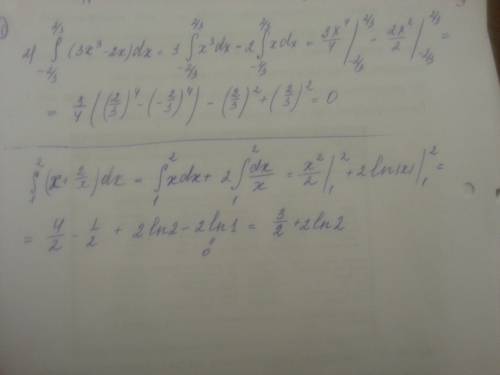 2) ∫_{-2/3}^{2/3} (3x³-2x)dx = 3 ∫_{-2/3}^{2/3} x³dx - 2 ∫_{-2/3}^{2/3} xdx = 3x⁴/4 |_{-2/3}^{2/3} - 2x²/2 |_{-2/3}^{2/3} =
= 3/4 ((2/3)⁴ - (-2/3)⁴) - (2/3)² + (2/3)² = 0
∫_1^2 (x + 2/x)dx = ∫_1^2 xdx + 2 ∫_1^2 dx/x = x²/2 |_1^2 + 2ln|x| |_1^2 =
= 4/2 - 1/2 + 2ln2 - 2ln1 = 3/2 + 2ln2
0